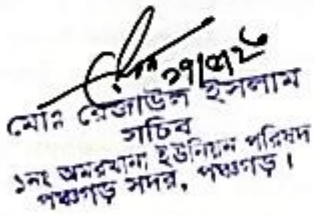 ২৭/০৭/২৬
মোঃ রেজাউল ইসলাম
সচিব
১নং অমরখানা ইউনিয়ন পরিষদ
পঞ্চগড় সদর, পঞ্চগড়।